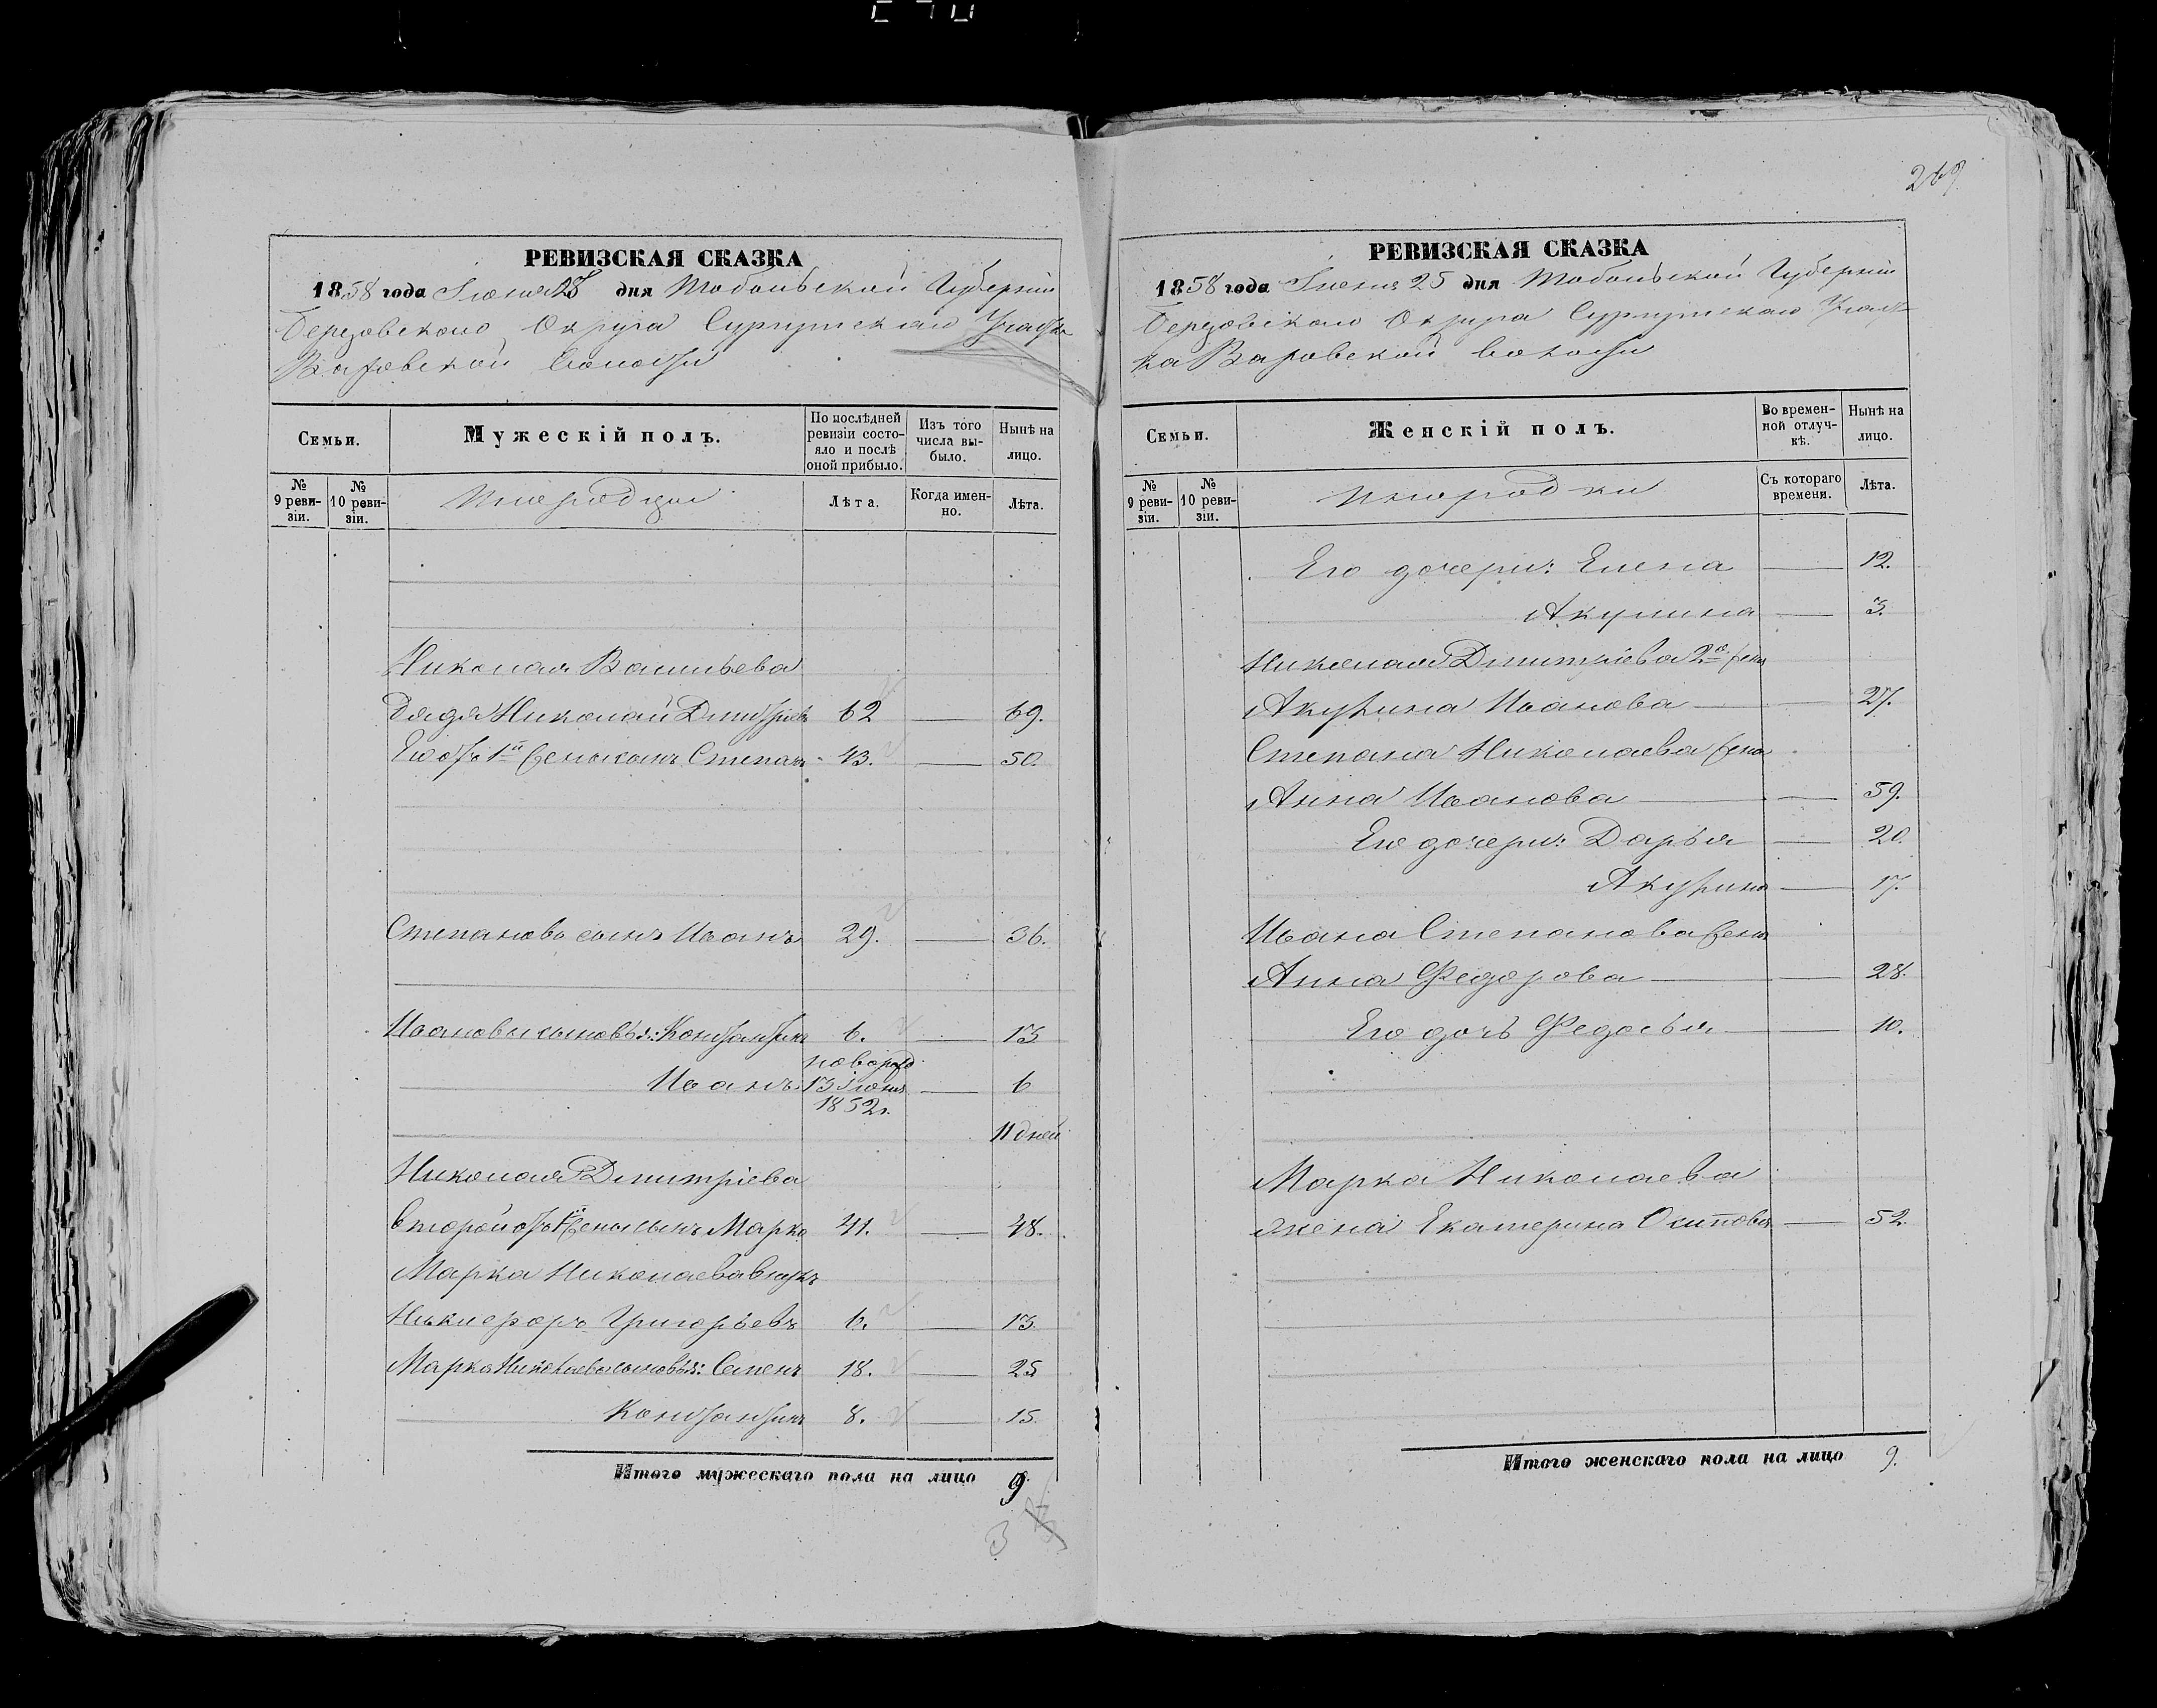 269
РЕВИЗСКАЯ СКАЗКА
1858 года Июня 25 дня Тобольской Губерніи
Березовского Округа Сургутского Участка
Ваховской волости
Семьи.
Мужескій полъ.
По послѣдней ревизіи состояло и послѣ оной прибыло.
Изъ того числа выбыло.
Нынѣ на лицо.
№ 9 ревизіи.
№ 10 ревизіи.
Инородцы
Лѣта.
Когда именно.
Лѣта.
Николая Васильева
дядя Николай Дмитріевъ 62 — 69.
Его отъ 1й жены сынъ Степанъ 43. — 50.
Степановъ сынъ Иванъ 29. — 36.
Ивановы сыновья: Констянтинъ 6. — 13
Иванъ новорожд 13 Июня 1852г. — 6
11 дней
Николая Дмитріева
второй отъ 1й жены сынъ Марко 41. — 48.
Марка Николаева внукъ
Никифоръ Григорьевъ 6. — 13.
Марка Николаева сыновья: Семенъ 18. — 25
Констянтинъ 8. — 15.
Итого мужескаго пола на лицо 9.
3
РЕВИЗСКАЯ СКАЗКА
1858 года Июня 25 дня Тобольской Губерніи
Березовского Округа Сургутского Участ-
ка Ваховской волости
Семьи.
Женскій полъ.
Во временной отлучкѣ.
Нынѣ на лицо.
№ 9 ревизіи.
№ 10 ревизіи.
Инородки
Съ котораго времени.
Лѣта.
Его дочери: Елена — 12.
Акулина — 3.
Николая Дмитріева 2я жена
Акулина Иванова — 27.
Степана Николаева жена
Анна Иванова — 59.
Его дочери: Дарья — 20.
Акулина — 17.
Ивана Степанова жена
Анна Федорова — 28.
Его дочь Федосья — 10.
Марка Николаева
жена Екатерина Осипова — 52.
Итого женскаго пола на лицо 9.